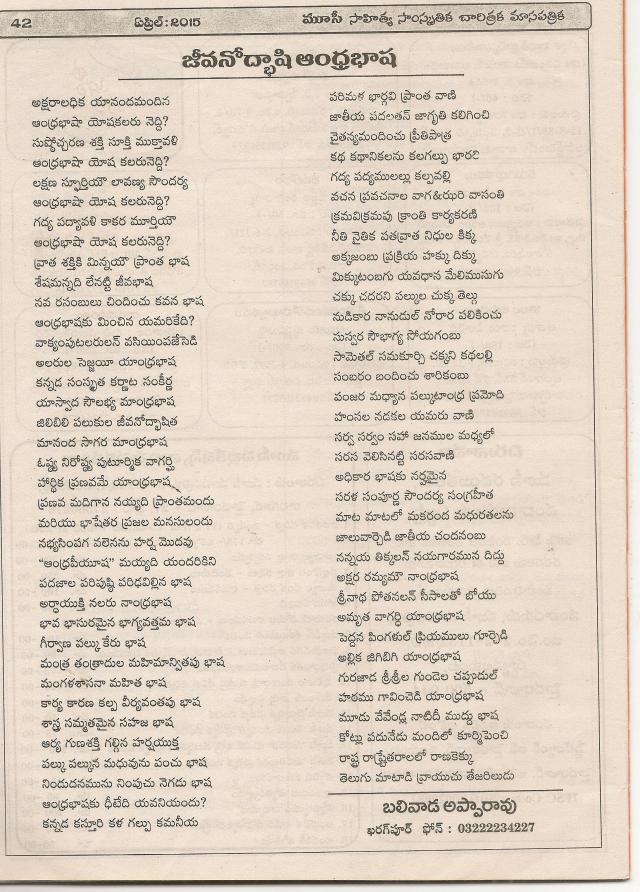 42
ఏప్రిల్:2015
మూసీ సాహిత్య సాంస్కృతిక చారిత్రక మాసపత్రిక
జీవనోద్భాషి ఆంధ్రభాష
అక్షరాలధిక యానందమందిన
ఆంధ్రభాషా యోషకలరు నెద్ది?
సుష్ఠోచ్చరణ శక్తి సూక్తి ముక్తావళి
ఆంధ్రభాషా యోష కలరునెద్ది?
లక్షణ స్ఫూర్తియౌ లావణ్య సౌందర్య
ఆంధ్రభాషా యోష కలరునెద్ది?
గద్య పద్యావళి కాకర మూర్తియౌ
ఆంధ్రభాషా యోష కలరునెద్ది?
వ్రాత శక్తికి మిన్నయౌ ప్రాంత భాష
శేషమన్నది లేనట్టి జీవభాష
నవ రసంబులు చిందించు కవన భాష
ఆంధ్రభాషకు మించిన యమరికేది?
వాక్యంపుటలరులన్ వసియింపజేసెడి
అలరుల సెజ్జయీ యాంధ్రభాష
కన్నడ సంస్కృత కర్ణాట సంకీర్ణ
యాస్వాద సౌలభ్య మాంధ్రభాష
జిలిబిలి పలుకుల జీవనోద్భాషిత
మానంద సాగర మాంధ్రభాష
ఓష్ఠ్య నిరోష్ఠ్య పుటూర్మిక వాగర్ధి
హార్థిక ప్రణవమే యాంధ్రభాష
ప్రణవ మదిగాన నయ్యది ప్రాంతమందు
మరియు భాషేతర ప్రజల మనసులందు
నభ్యసింపగ వలెనను హర్ష మొదవు
"ఆంధ్రపీయూష" మయ్యది యందరికిని
పదజాల పరిపుష్ఠి పరిఢవిల్లిన భాష
అర్ధాయుక్తి నలరు నాంధ్రభాష
భావ భాసురమైన భాగ్యవత్తమ భాష
గీర్వాణ పల్కు కేరు భాష
మంత్ర తంత్రాదుల మహిమాన్వితపు భాష
మంగళశాసనా మహిత భాష
కార్య కారణ కల్ప వీర్యవంతపు భాష
శాస్త్ర సమ్మతమైన సహజ భాష
ఆర్య గుణశక్తి గల్గిన హర్షయుక్త
పల్కు పల్కున మధువును పంచు భాష
నిండుదనమును నింపుచు నెగడు భాష
ఆంధ్రభాషకు ధీటేది యవనియందు?
కన్నడ కస్తూరి కళ గల్పు కమనీయ
పరిమళ భార్గవి ప్రాంత వాణి
జాతీయ పదలతన్ జాగృతి కలిగించి
చైతన్యమందించు ప్రీతిపాత్ర
కథ కథానికలను కలగల్పు భారతి
గద్య పద్యములల్లు కల్పవల్లి
వచన ప్రవచనాల వాగ&ఝరి వాసంతి
క్రమవిక్రమపు క్రాంతి కార్యకరణి
నీతి నైతిక పతవ్రాత నిధుల కిక్క
అక్కజంబు ప్రక్రియ హక్కు దిక్కు
మిక్కుటంబగు యవధాన మేలిముసుగు
చక్కు చదరని పల్కుల చుక్క తెల్గు
నుడికార నానుడుల్ నోరార పలికించు
సుస్వర సౌభాగ్య సోయగంబు
సామెతల్ సమకూర్చి చక్కని కథలల్లి
సంబరం బందించు శారికంబు
పంజర మధ్యాన పల్కుటాంధ్ర ప్రమోది
హంసల నడకల యమరు వాణి
సర్వ సర్వం సహా జనముల మధ్యలో
సరస వెలిసినట్టి సరసవాణి
అధికార భాషకు నర్హమైన
సరళ సంపూర్ణ సౌందర్య సంగ్రహీత
మాట మాటలో మకరంద మధురతలను
జాలువార్చెడి జాతీయ చందనంబు
నన్నయ తిక్కలన్ నయగారమున దిద్దు
అక్షర రమ్యమౌ నాంధ్రభాష
శ్రీనాథ పోతనలన్ సీసాలతో బోయు
అమృత వాగర్ధి యాంధ్రభాష
పెద్దన పింగళుల్ ప్రియములు గూర్చెడి
అల్లిక జిగిబిగి యాంధ్రభాష
గురజాడ శ్రీశ్రీల గుండెల చప్పుడుల్
హఠము గావించెడి యాంధ్రభాష
మూడు వేవేండ్ల నాటిదీ ముద్దు భాష
కోట్లు పదునేడు మందిలో కూర్మిపెంచి
రాష్ట్ర రాష్ట్రేతరాలలో రాణకెక్కు
తెలుగు మాటాడి వ్రాయుచు తేజరిలుదు
బలివాడ అప్పారావు
ఖరగ్‌పూర్ ఫోన్ : 03222234227